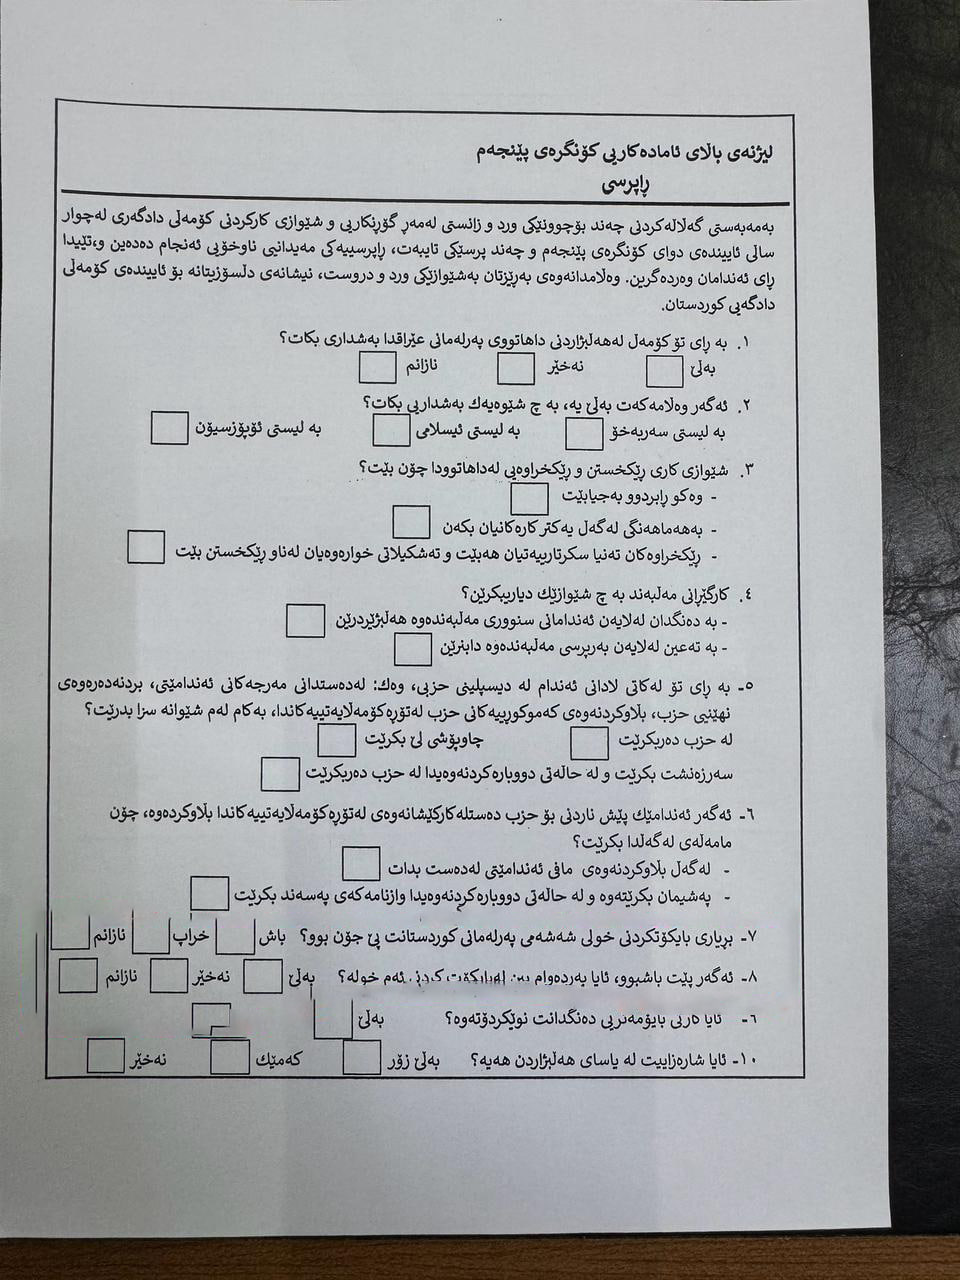 لیژنەی باڵای ئامادەکاریی کۆنگرەی پێنجەم
ڕاپرسی
بەمەبەستی گەڵاڵەکردنی چەند بۆچوونێکی ورد و زانستی لەمەڕ گۆڕنکاریی و شێوازی کارکردنی کۆمەڵی دادگەری لەچوار
ساڵی ئاییندەی دوای کۆنگرەی پێنجەم و چەند پرسێکی تایبەت، ڕاپرسییەکی مەیدانیی ناوخۆیی ئەنجام دەدەین و،تێیدا
ڕای ئەندامان وەردەگرین. وەڵامدانەوەی بەڕێزتان بەشێوازێکی ورد و دروست، نیشانەی دڵسۆزیتانە بۆ ئاییندەی کۆمەڵی
دادگەیی کوردستان.
١. بە ڕای تۆ کۆمەڵ لەهەڵبژاردنی داهاتووی پەرلەمانی عێراقدا بەشداری بکات؟
بەڵێ نەخێر نازانم
٢. ئەگەر وەڵامەکەت بەڵێ یە، بە چ شێوەیەك بەشداریی بکات؟
بە لیستی سەربەخۆ بە لیستی ئیسلامی بە لیستی ئۆپۆزسیۆن
٣. شێوازی کاری ڕێکخستن و ڕێکخراوەیی لەداهاتوودا چۆن بێت؟
- وەکو ڕابردوو بەجیابێت
- بەهەماهەنگی لەگەڵ یەکتر کارەکانیان بکەن
- ڕێکخراوەکان تەنیا سکرتارییەتیان هەبێت و تەشکیلاتی خوارەوەیان لەناو ڕێکخستن بێت
٤. کارگێڕانی مەڵبەند بە چ شێوازێك دیاریبکرێن؟
- بە دەنگدان لەلایەن ئەندامانی سنووری مەڵبەندەوە هەڵبژێردرێن
- بە تەعین لەلایەن بەرپرسی مەڵبەندەوە دابنرێن
٥- بە ڕای تۆ لەکاتی لادانی ئەندام لە دیسپلینی حزبی، وەك: لەدەستدانی مەرجەکانی ئەندامێتی، بردنەدەرەوەی
نهێنیی حزب، بڵاوکردنەوەی کەموکوڕییەکانی حزب لەتۆڕە کۆمەڵایەتییەکاندا، بەکام لەم شێوانە سزا بدرێت؟
لە حزب دەربکرێت چاوپۆشی لێ بکرێت
سەرزەنشت بکرێت و لە حاڵەتی دووبارەکردنەوەیدا لە حزب دەربکرێت
٦- ئەگەر ئەندامێك پێش ناردنی بۆ حزب دەستلەکارکێشانەوەی لەتۆڕە کۆمەڵایەتییەکاندا بڵاوکردەوە، چۆن
مامەڵەی لەگەڵدا بکرێت؟
- لەگەڵ بڵاوکردنەوەی مافی ئەندامێتی لەدەست بدات
- پەشیمان بکرێتەوە و لە حاڵەتی دووبارەکردنەوەیدا وازنامەکەی پەسەند بکرێت
٧- بڕیاری بایکۆتکردنی خولی شەشەمی پەرلەمانی کوردستانت پێ چۆن بوو؟ باش خراپ نازانم
٨- ئەگەر پێت باشبوو، ئایا بەردەوام بین لەبایکۆت کردنی ئەم خولە؟ بەڵێ نەخێر نازانم
٦- ئایا کارتی بایۆمەتریی دەنگدانت نوێکردۆتەوە؟ بەڵێ
١٠- ئایا شارەزاییت لە یاسای هەڵبژاردن هەیە؟ بەڵێ زۆر کەمێك نەخێر